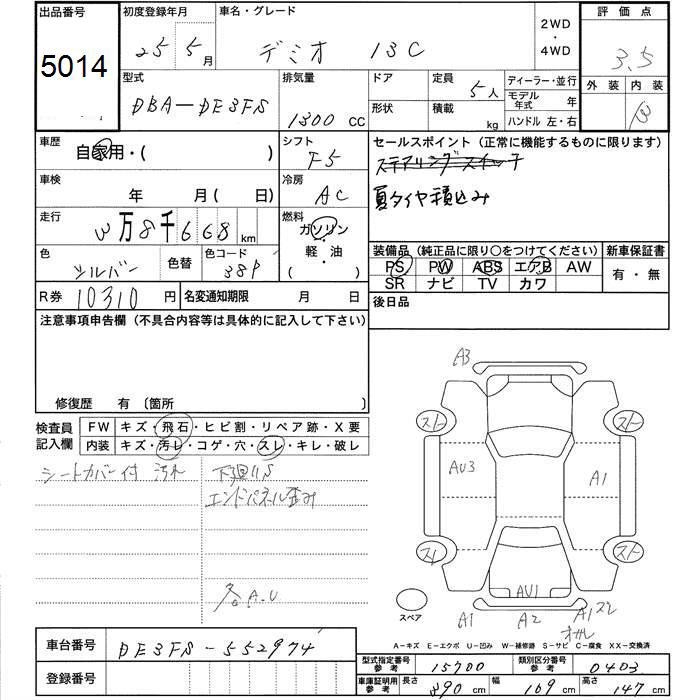 出品番号 初度登録年月 車名・グレード 2WD・4WD 評価点
5014 25年 5月 デミオ 13C 3.5
型式 排気量 ドア 定員 ディーラー・並行 外装 内装
DBA-DE3FS 1300 CC 5人 モデル年式 年
形状 積載 kg ハンドル 左・右
車歴 シフト セールスポイント (正常に機能するものに限ります)
自家用・( ) F5 ステアリングスイッチ
車検 冷房 夏タイヤ積込み
年 月( 日) AC
走行 燃料
3万8千668km ガソリン
軽・油
( )
色 色替 色コード 装備品 (純正品に限り○をつけてください) 新車保証書
シルバー 38P PS PW ABS エアB AW 有・無
SR ナビ TV カワ
R券 10310円 名変通知期限 月 日 後日品
注意事項申告欄 (不具合内容等は具体的に記入して下さい)
修復歴 有 〔箇所 〕
検査員記入欄 FW キズ・飛石・ヒビ割・リペア跡・X要
内装 キズ・汚レ・コゲ・穴・スレ・キレ・破レ
シートカバー付 汚れ 下廻りS
エンドパネル歪み
各A.U
A3
スト スト
AU3 A1
スレ スト
AU1
スペア A1 A2 A1
A-キズ E-エクボ U-凹み W-補修跡 S-サビ C-腐食 XX-交換済
車台番号 DE3FS-552974
登録番号
型式指定番号 参考 15700 類別区分番号 参考 0403
車庫証明用 参考 長さ 390cm 幅 169cm 高さ 147cm